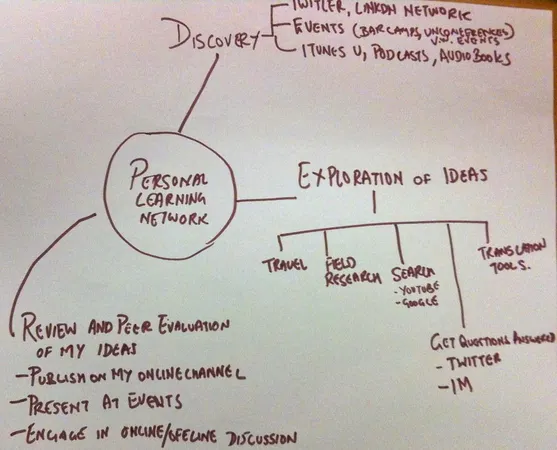 TWITTER, LINKDN NETWORK
DISCOVERY
EVENTS (BARCAMPS, UNCONFERENCES)
V.N. EVENTS
ITUNES U, PODCASTS, AUDIOBOOKS
PERSONAL
LEARNING
NETWORK
EXPLORATION OF IDEAS
TRAVEL
FIELD
RESEARCH
SEARCH
- YOUTUBE
- GOOGLE
TRANSLATION
TOOLS.
GET QUESTIONS ANSWERED
- TWITTER
- IM
REVIEW AND PEER EVALUATION
OF MY IDEAS
- PUBLISH ON MY ONLINE CHANNEL
- PRESENT AT EVENTS
- ENGAGE IN ONLINE/OFFLINE DISCUSSION